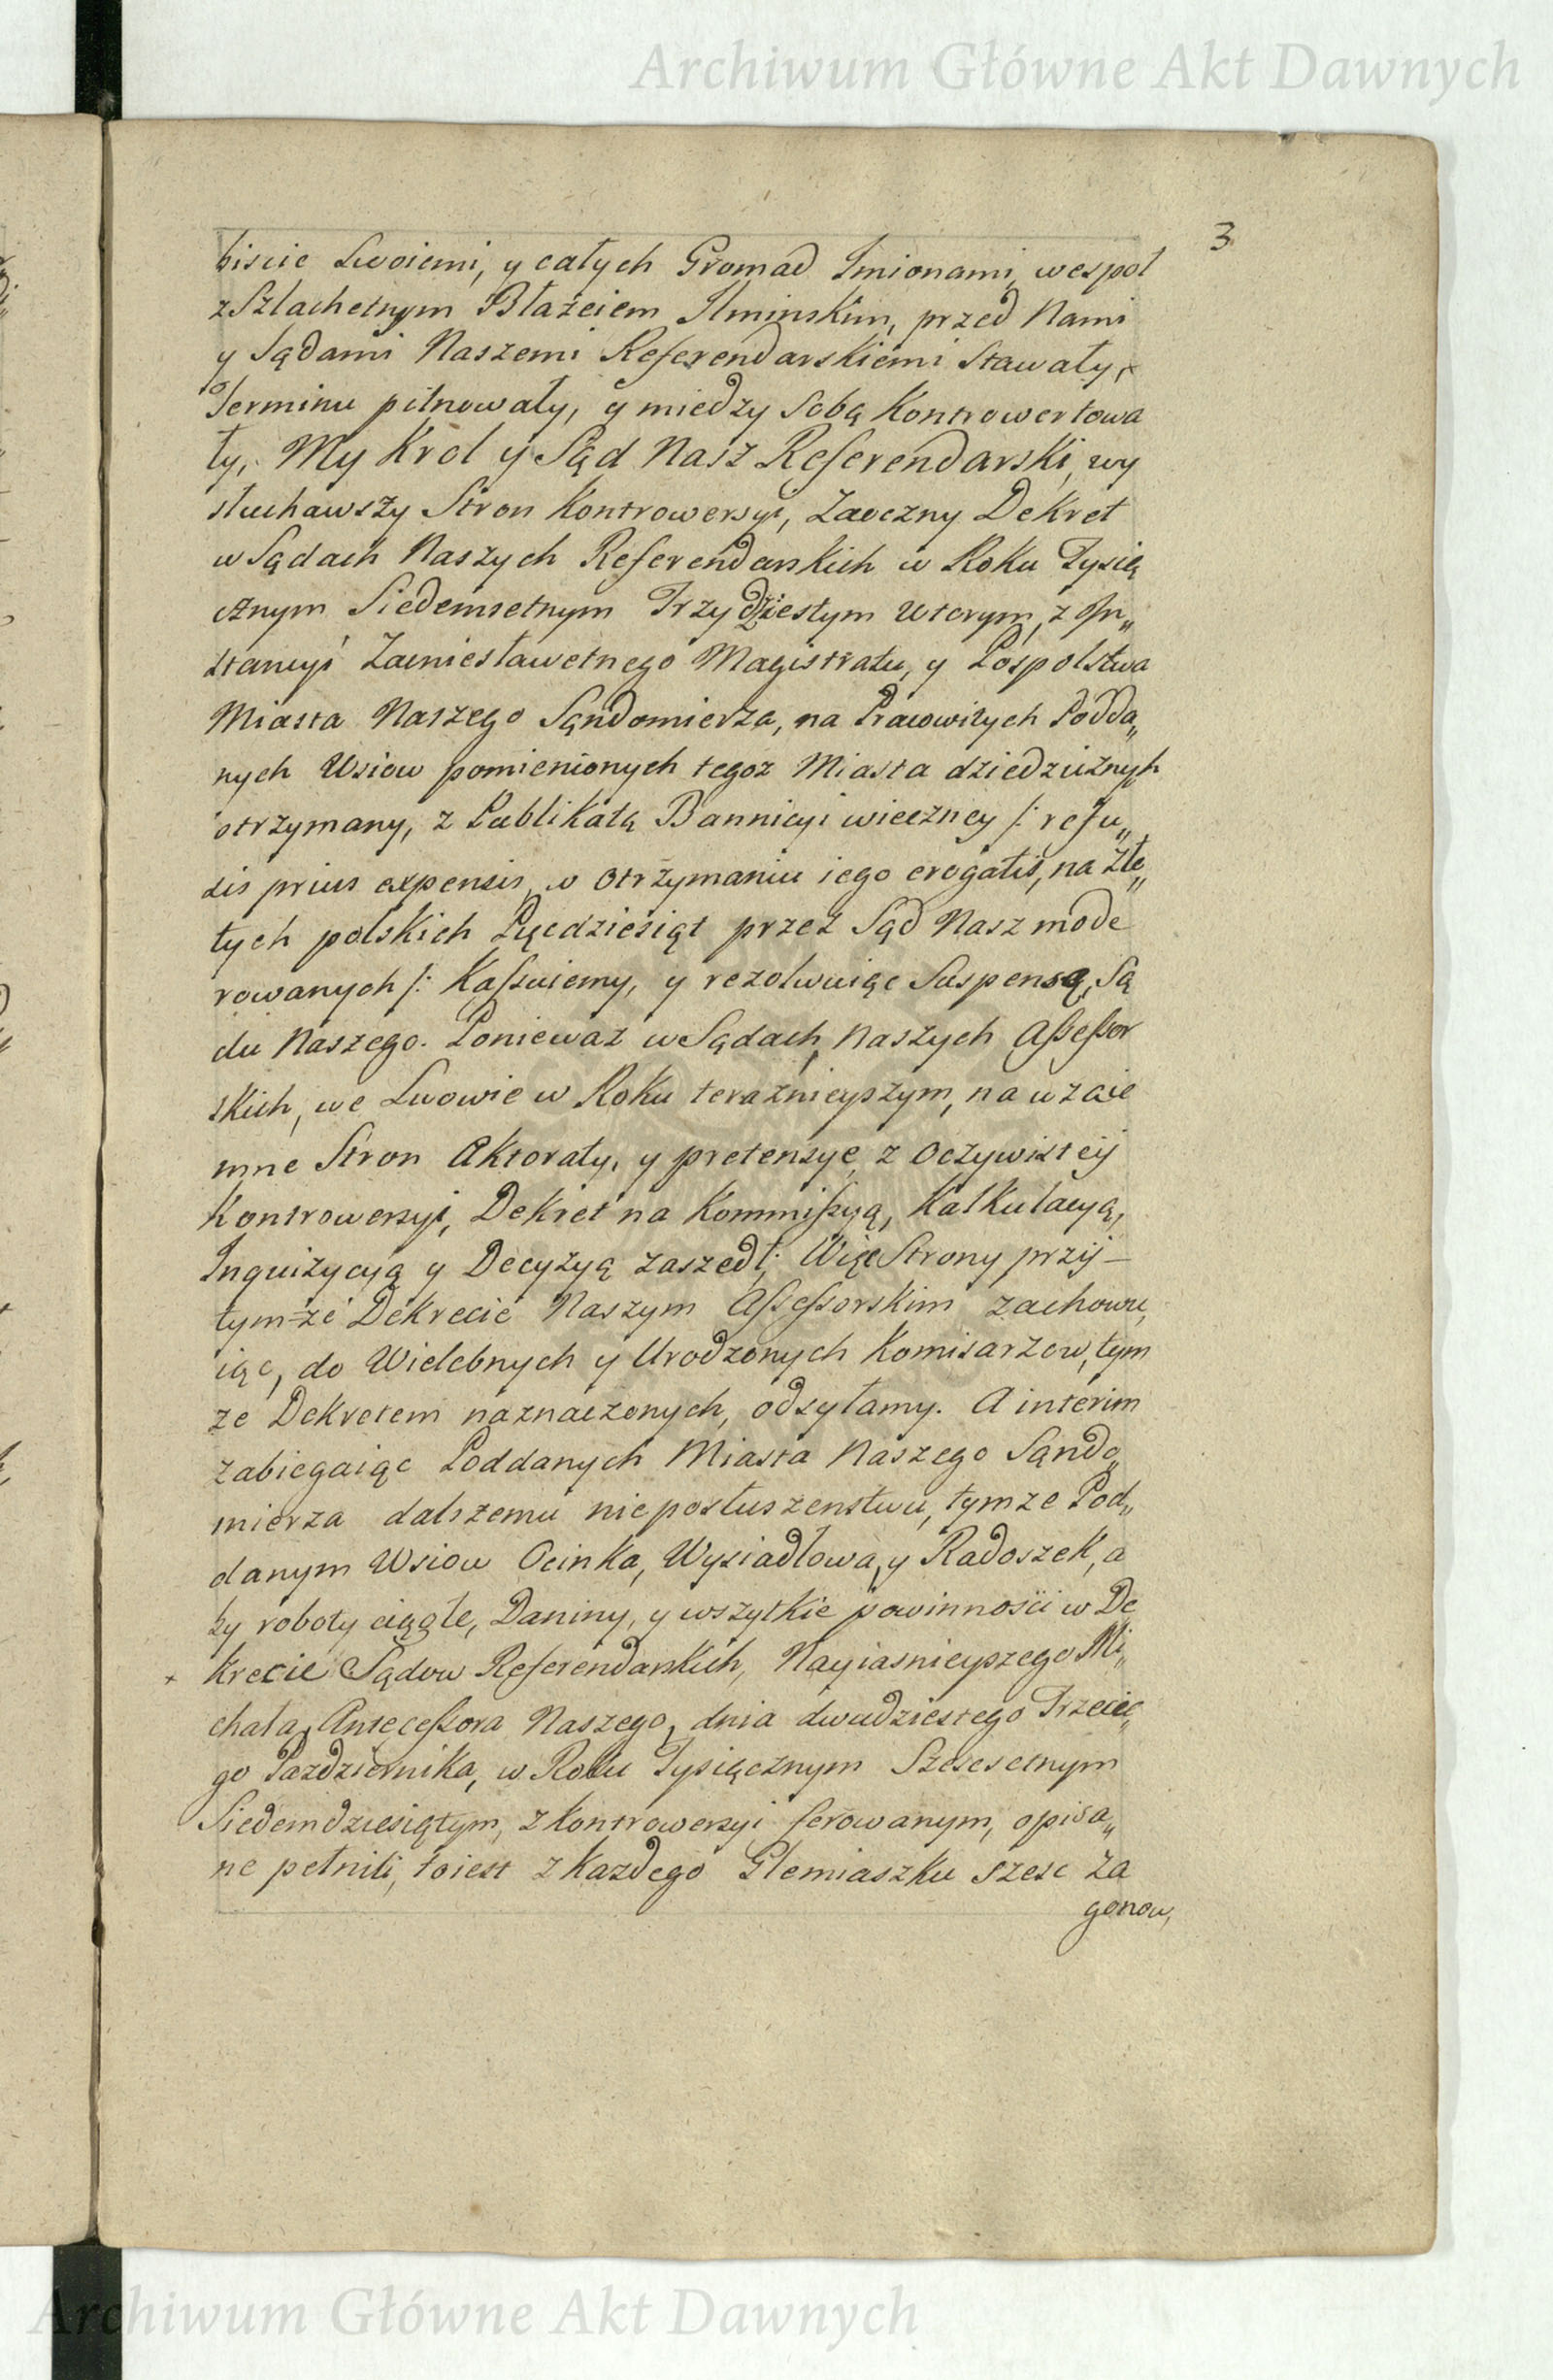 Archiwum Główne Akt Dawnych
3
biscie Swoiemi, y całych Gromad Imionami, wespoł
z Szlachetnym Błażeiem Ilminskim, przed Nami
y Sądami Naszemi Referendarskiemi Stawały,
Terminu pilnowały, y miedzy Sobą Kontrowertowa
ły, My Krol y Sąd Nasz Referendarski, wy
słuchawszy Stron Kontrowersyi, Zaoczny Dekret
w Sądach Naszych Referendarskich w Roku Tysią
cznym Siedemsetnym Trzydziestym Wtorym, z Jn„
stancyi Zacniesławetnego Magistratu, y Pospolstwa
Miasta Naszego Sąndomierza, na Pracowitych Podda„
nych Wsiow pomienionych tegoz Miasta dziedzicznych
otrzymany, z Publikatą Bannicyi wieczney /: refu„
sis prius expensis, w otrzymaniu iego erogatis, na Zło„
tych polskich Pięcdziesiąt przez Sąd Nasz mode
rowanych /: Kassuiemy, y rezolwuiąc Suspensą, Są
du Naszego. Poniewaz w Sądach, Naszych Assessor
skich, we Lwowie w Roku teraznieyszym, na wzaie
mne Stron Aktoraty, y pretensye, z Oczywistey
Kontrowersyi, Dekret na Kommissyą, Kalkulacyą,
Inquizycyą y Decyzyą zaszedł; Więc Strony przy–
tym-że Dekrecie Naszym Assessorskim zachowu„
iąc, do Wielebnych y Urodzonych Komisarzow, tym
ze Dekretem naznaczonych, odsyłamy. A interim
zabiegaiąc Poddanych Miasta Naszego Sąndo„
mierza dalszemu nieposłuszenstwu, tymze Pod„
danym Wsiow Ocinka, Wysiadłowa, y Radoszek, a
by roboty ciągłe, Daniny, y wszytkie powinności w De
+ krecie Sądow Referendarskich, Nayiasnieyszego Mi„
chała, Antecessora Naszego, dnia dwudziestego Trzecie„
go Pazdziernika, w Roku Tysiącznym Szescsetnym
Siedemdziesiątym, z Kontrowersyi ferowanym, opisa„
ne pełnili, toiest z Kazdego Slemiaszku szesc Za
gonow,
Archiwum Główne Akt Dawnych